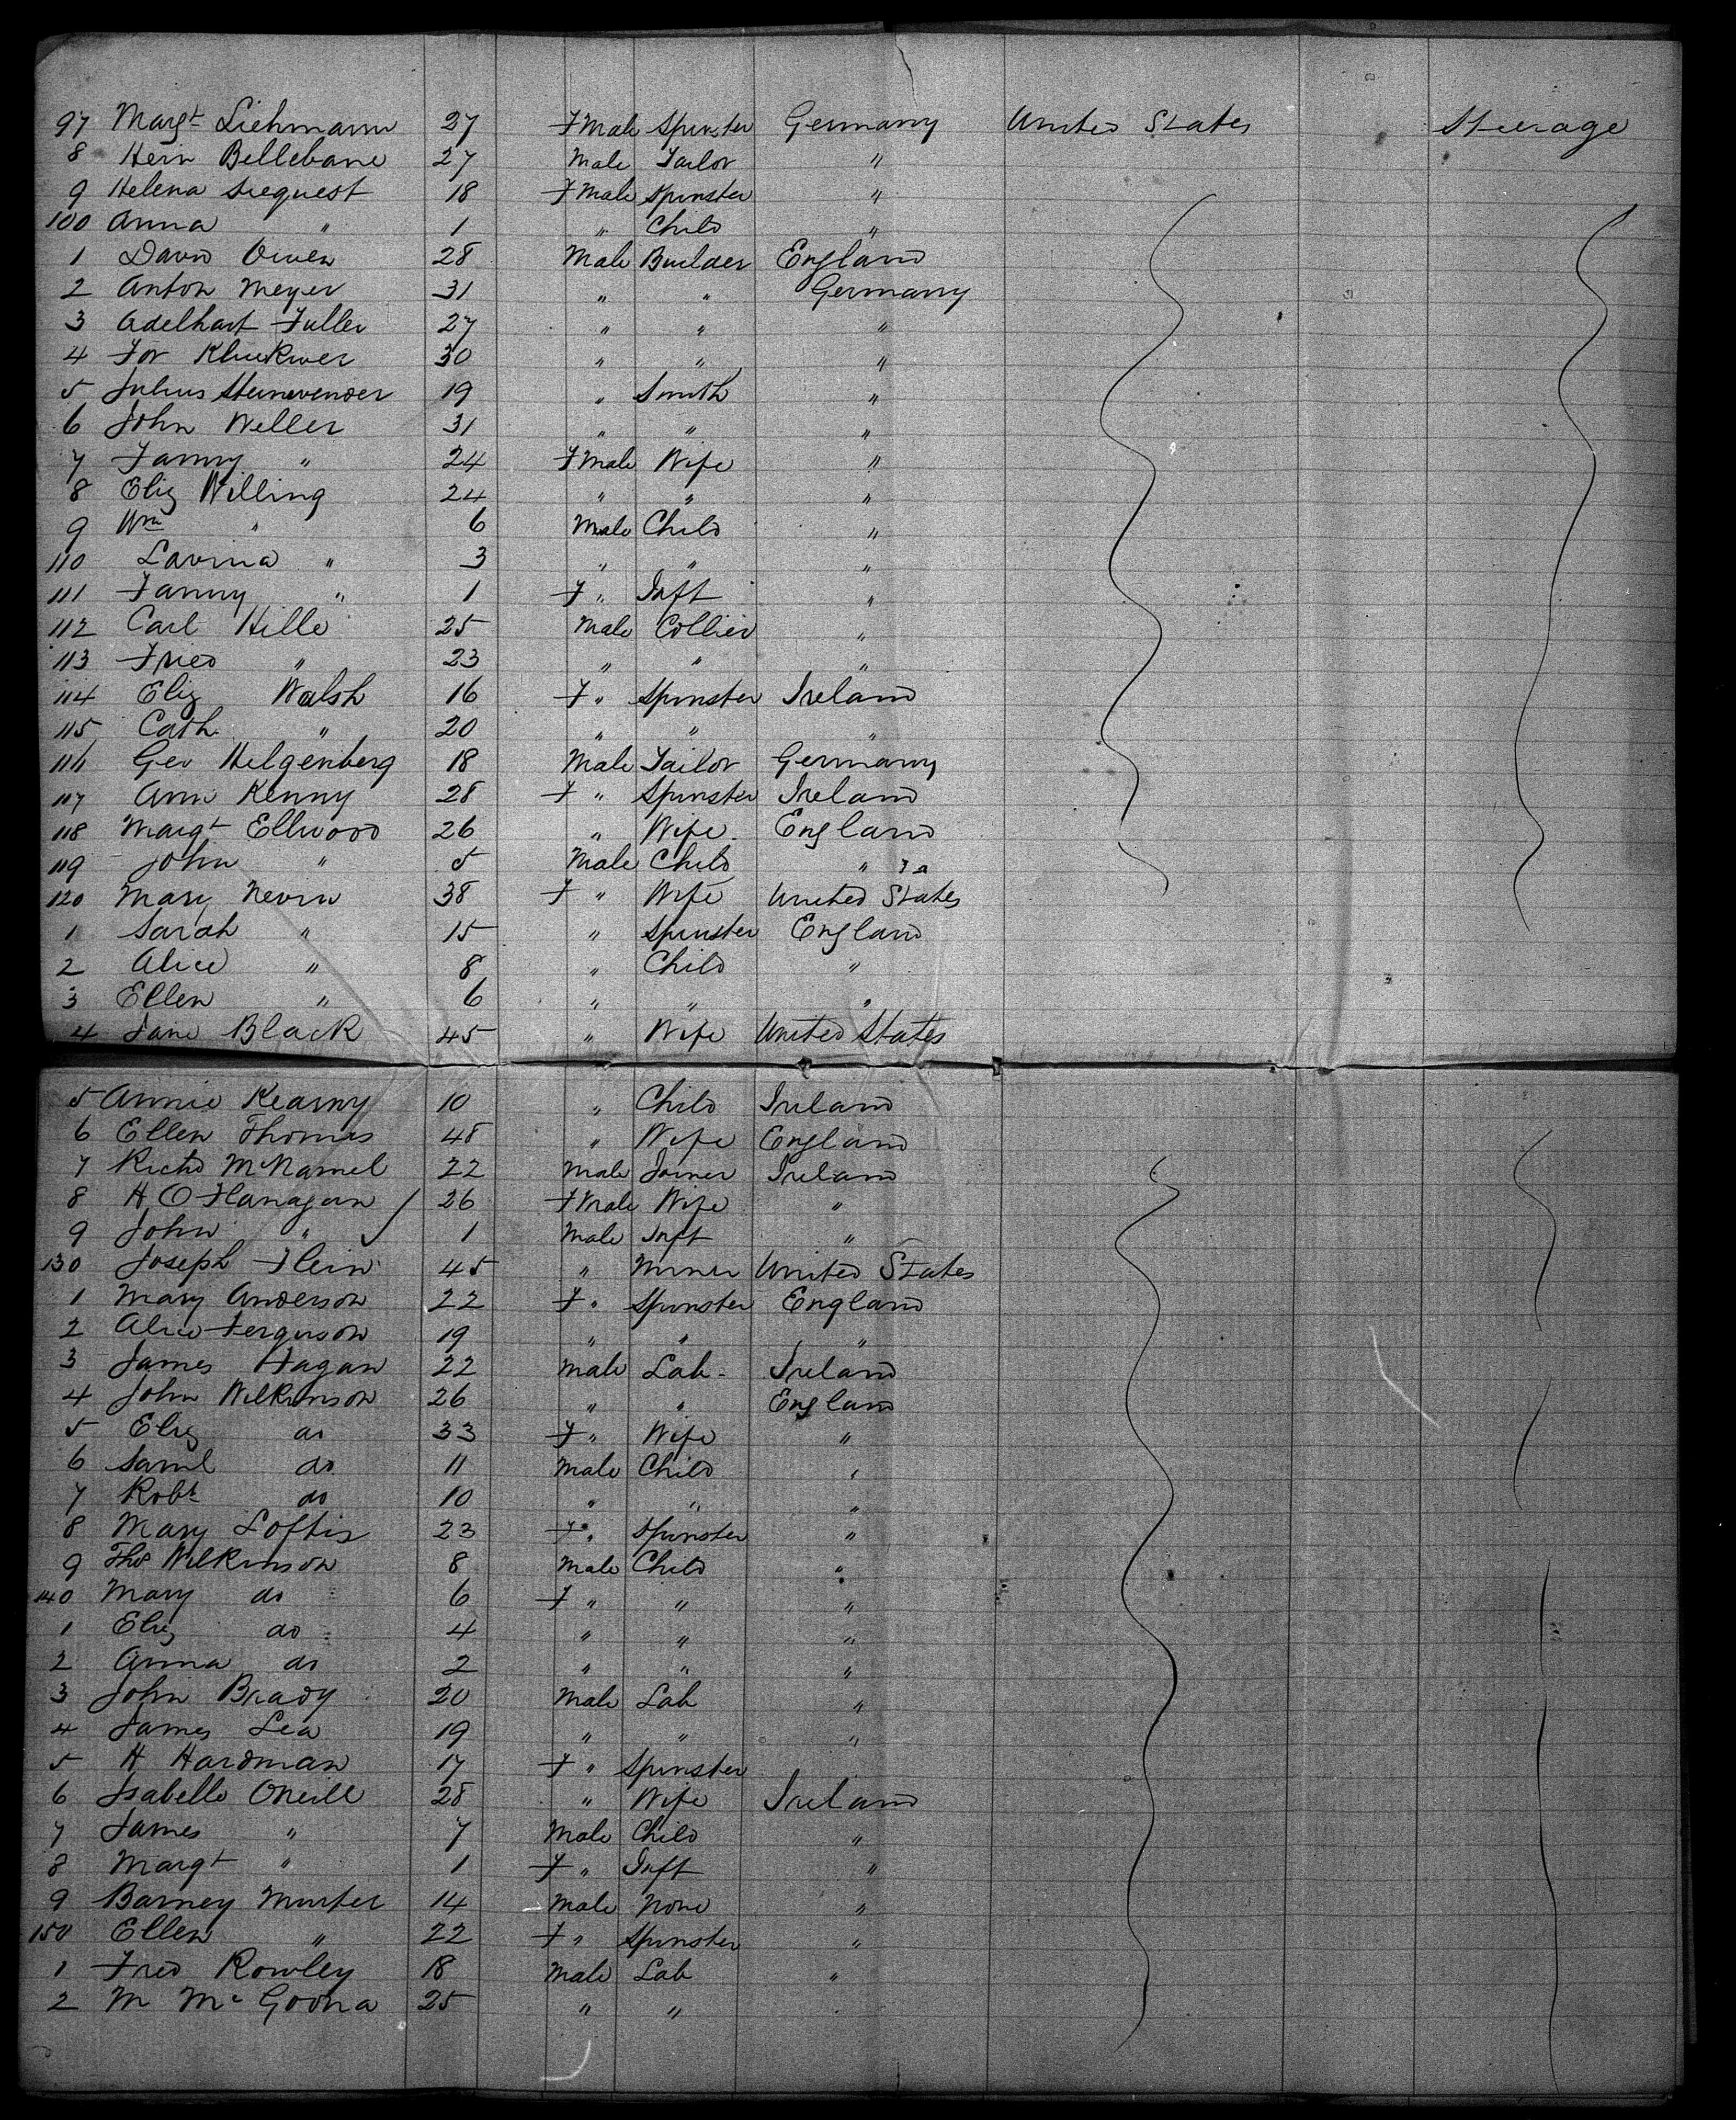 97 Margt Liehmann 27 Fmale Spinster Germany United States Steerage
8 Hein Bellebane 27 Male Tailor "
9 Helena Siequest 18 Fmale Spinster "
100 Anna " 1 " Child "
1 David Owen 28 Male Builder England
2 Anton Meyer 31 " " Germany
3 Adelhart Fuller 27 " " "
4 For 30 " " "
5 Julius Steinwender 19 " Smith "
6 John Weller 31 " " "
7 Fanny " 24 Fmale Wife "
8 Eliz Willing 24 " " "
9 Wm " 6 Male Child "
110 Lavina " 3 " " "
111 Fanny " 1 F " Inft "
112 Carl Hille 25 Male Collier "
113 Fried " 23 " " "
114 Eliz Walsh 16 F " Spinster Ireland
115 Cath " 20 " " "
116 Geo Hilgenberg 18 Male Tailor Germany
117 Ann Kenny 28 F " Spinster Ireland
118 Margt Ellwood 26 " Wife England
119 John " 5 Male Child "
120 Mary Nevin 38 F " Wife United States
1 Sarah " 15 " Spinster England
2 Alice " 8 " Child "
3 Ellen " 6 " " "
4 Jane Black 45 " Wife United States
5 Annie Kearny 10 " Child Ireland
6 Ellen Thomas 48 " Wife England
7 Richd McNamel 22 Male Joiner Ireland
8 H O Flanagan 26 Fmale Wife "
9 John " 1 Male Inft "
130 Joseph Flein 45 " Miner United States
1 Mary Anderson 22 F " Spinster England
2 Alice Ferguson 19 " " "
3 James Hagan 22 Male Lab- Ireland
4 John Wilkinson 26 " " England
5 Eliz do 33 F " Wife "
6 Saml do 11 Male Child "
7 Robt do 10 " " "
8 Mary Loftis 23 F " Spinster "
9 Thos Wilkinson 8 Male Child "
140 Mary do 6 F " " "
1 Eliz do 4 " " "
2 Anna do 2 " " "
3 John Brady 20 Male Lab "
4 James Lea 19 " " "
5 H Hardman 17 F " Spinster
6 Isabella ONeill 28 " Wife Ireland
7 James " 7 Male Child "
8 Margt " 1 F " Inft "
9 Barney Murter 14 Male None "
150 Ellen " 22 F " Spinster "
1 Fred Rowley 18 Male Lab "
2 M McGoona 25 " "